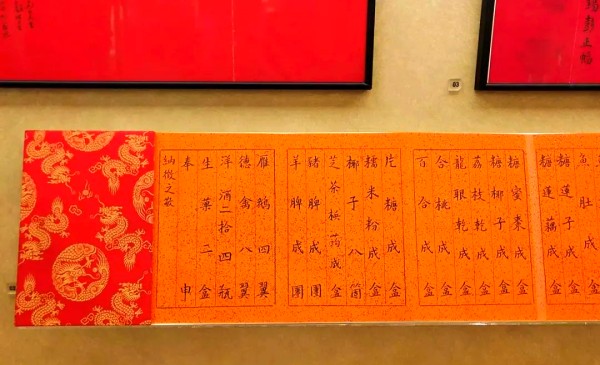 魚肚成盒
糖蓮子成盒
糖蓮藕成盒
糖蜜棗成盒
糖椰子成盒
荔枝乾成盒
龍眼乾成盒
合桃成盒
百合成盒
片糖成盒
糯米粉成盒
椰子八箇
芝茶檳蒟成盒
豬脾成圑
羊脾成圑
雁鵝四翼
德禽八翼
洋酒二拾四瓶
生菓二盒
奉申
納徵之敬
03